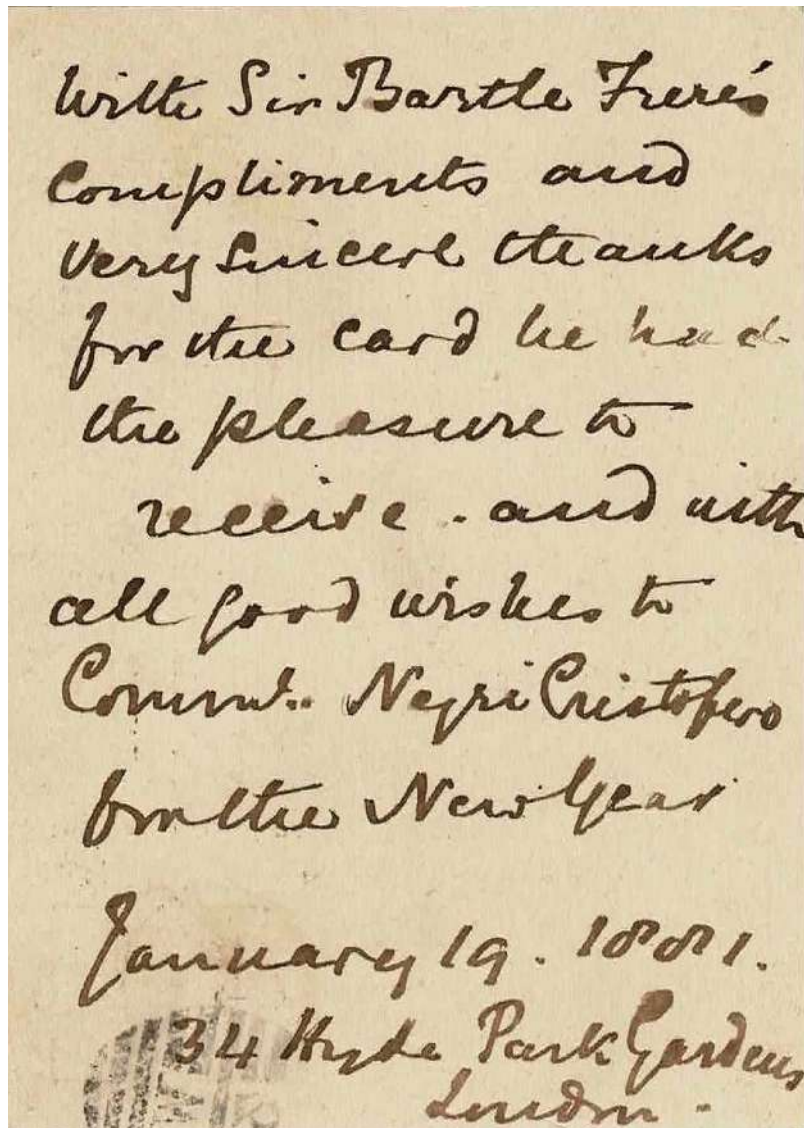 With Sir Bartle Frere's
Compliments and
very sincere thanks
for the card he had
the pleasure to
receive . and with
all good wishes to
Commr. Negri Cristofero
for the New Year
January 19 . 1881.
34 Hyde Park Gardens
London .